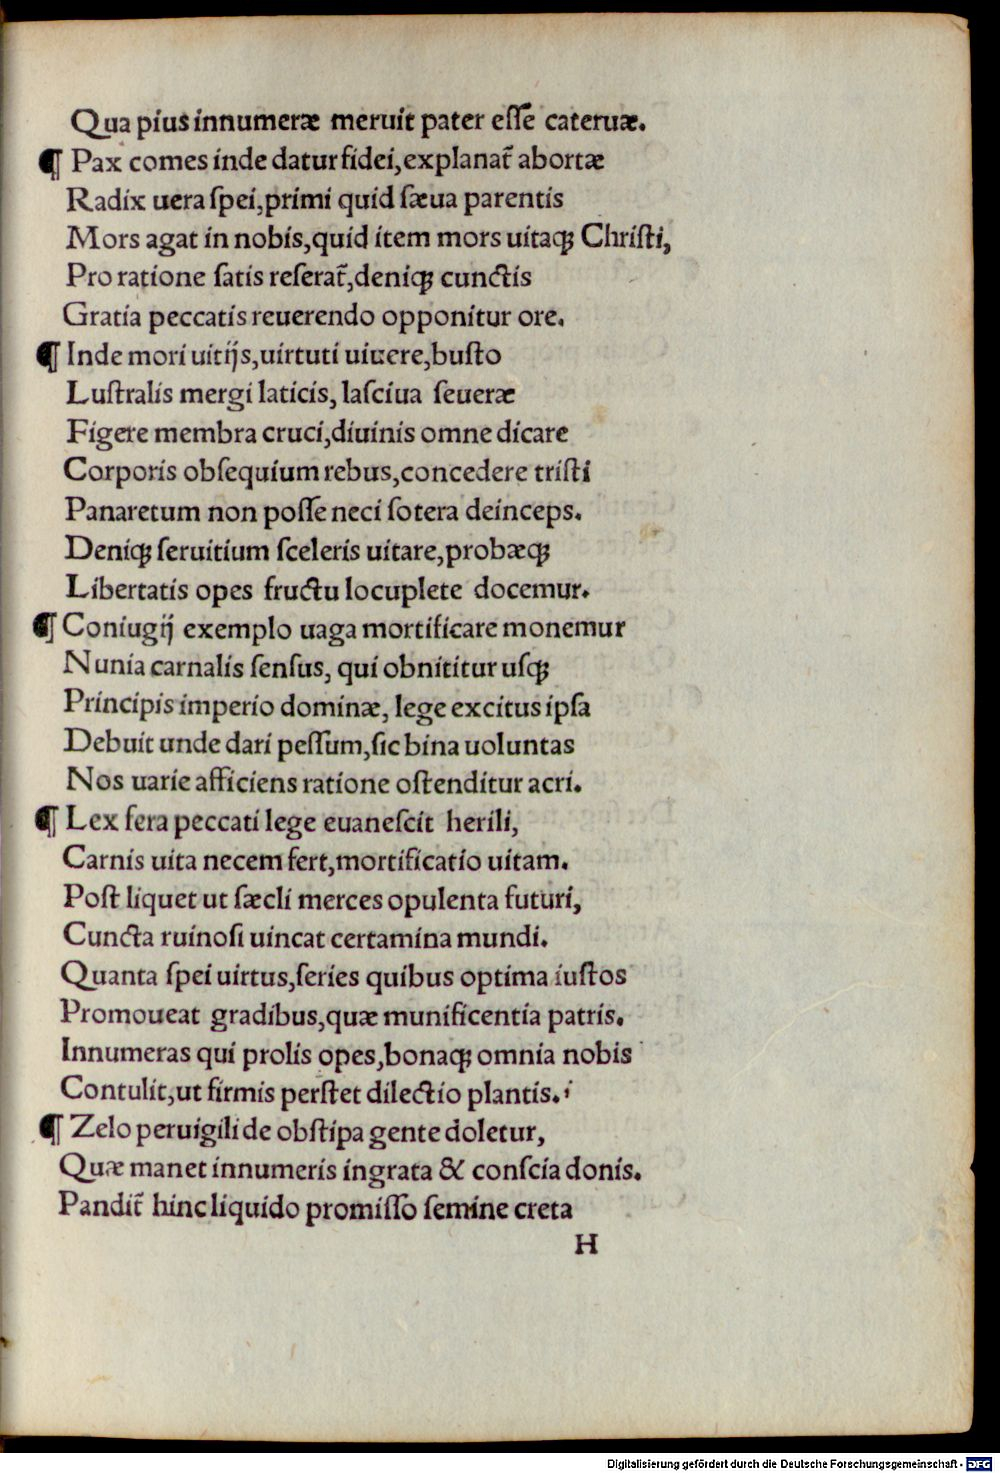 Qua pius innumeræ meruit pater eſſe cateruæ.
¶ Pax comes inde datur fidei,explanat᷑ abortæ
Radix uera ſpei,primi quid ſæua parentis
Mors agat in nobis,quid item mors uitaqꝫ Chriſti,
Pro ratione ſatis referat᷑,deniqꝫ cunctis
Gratia peccatis reuerendo opponitur ore.
¶ Inde mori uitijs,uirtuti uiuere,buſto
Luſtralis mergi laticis, laſciua ſeueræ
Figere membra cruci,diuinis omne dicare
Corporis obſequium rebus,concedere triſti
Panaretum non poſſe neci ſotera deinceps.
Deniqꝫ ſeruitium ſceleris uitare,probæqꝫ
Libertatis opes fructu locuplete docemur.
¶ Coniugij exemplo uaga mortificare monemur
Nunia carnalis ſenſus, qui obnititur uſqꝫ
Principis imperio dominæ, lege excitus ipſa
Debuit unde dari peſſum,ſic bina uoluntas
Nos uarie afficiens ratione oſtenditur acri.
¶ Lex fera peccati lege euaneſcit herili,
Carnis uita necem fert,mortificatio uitam.
Poſt liquet ut ſæcli merces opulenta futuri,
Cuncta ruinoſi uincat certamina mundi.
Quanta ſpei uirtus,ſeries quibus optima iuſtos
Promoueat gradibus,quæ munificentia patris.
Innumeras qui prolis opes,bonaqꝫ omnia nobis
Contulit,ut firmis perſtet dilectio plantis.
¶ Zelo peruigili de obſtipa gente doletur,
Quæ manet innumeris ingrata & conſcia donis.
Pandit᷑ hinc liquido promiſſo ſemine creta
H
Digitalisierung gefördert durch die Deutsche Forschungsgemeinschaft - DFG